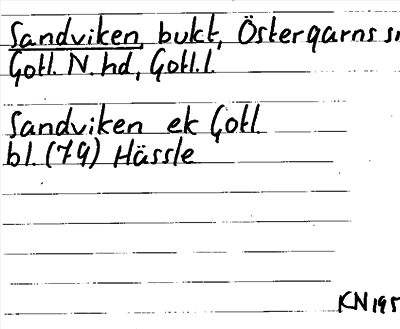 Sandviken, bukt, Östergarns s
Gotl. N. hd, Gotl. l.
Sandviken ek Gotl.
bl. (79) Hässle
KN 195